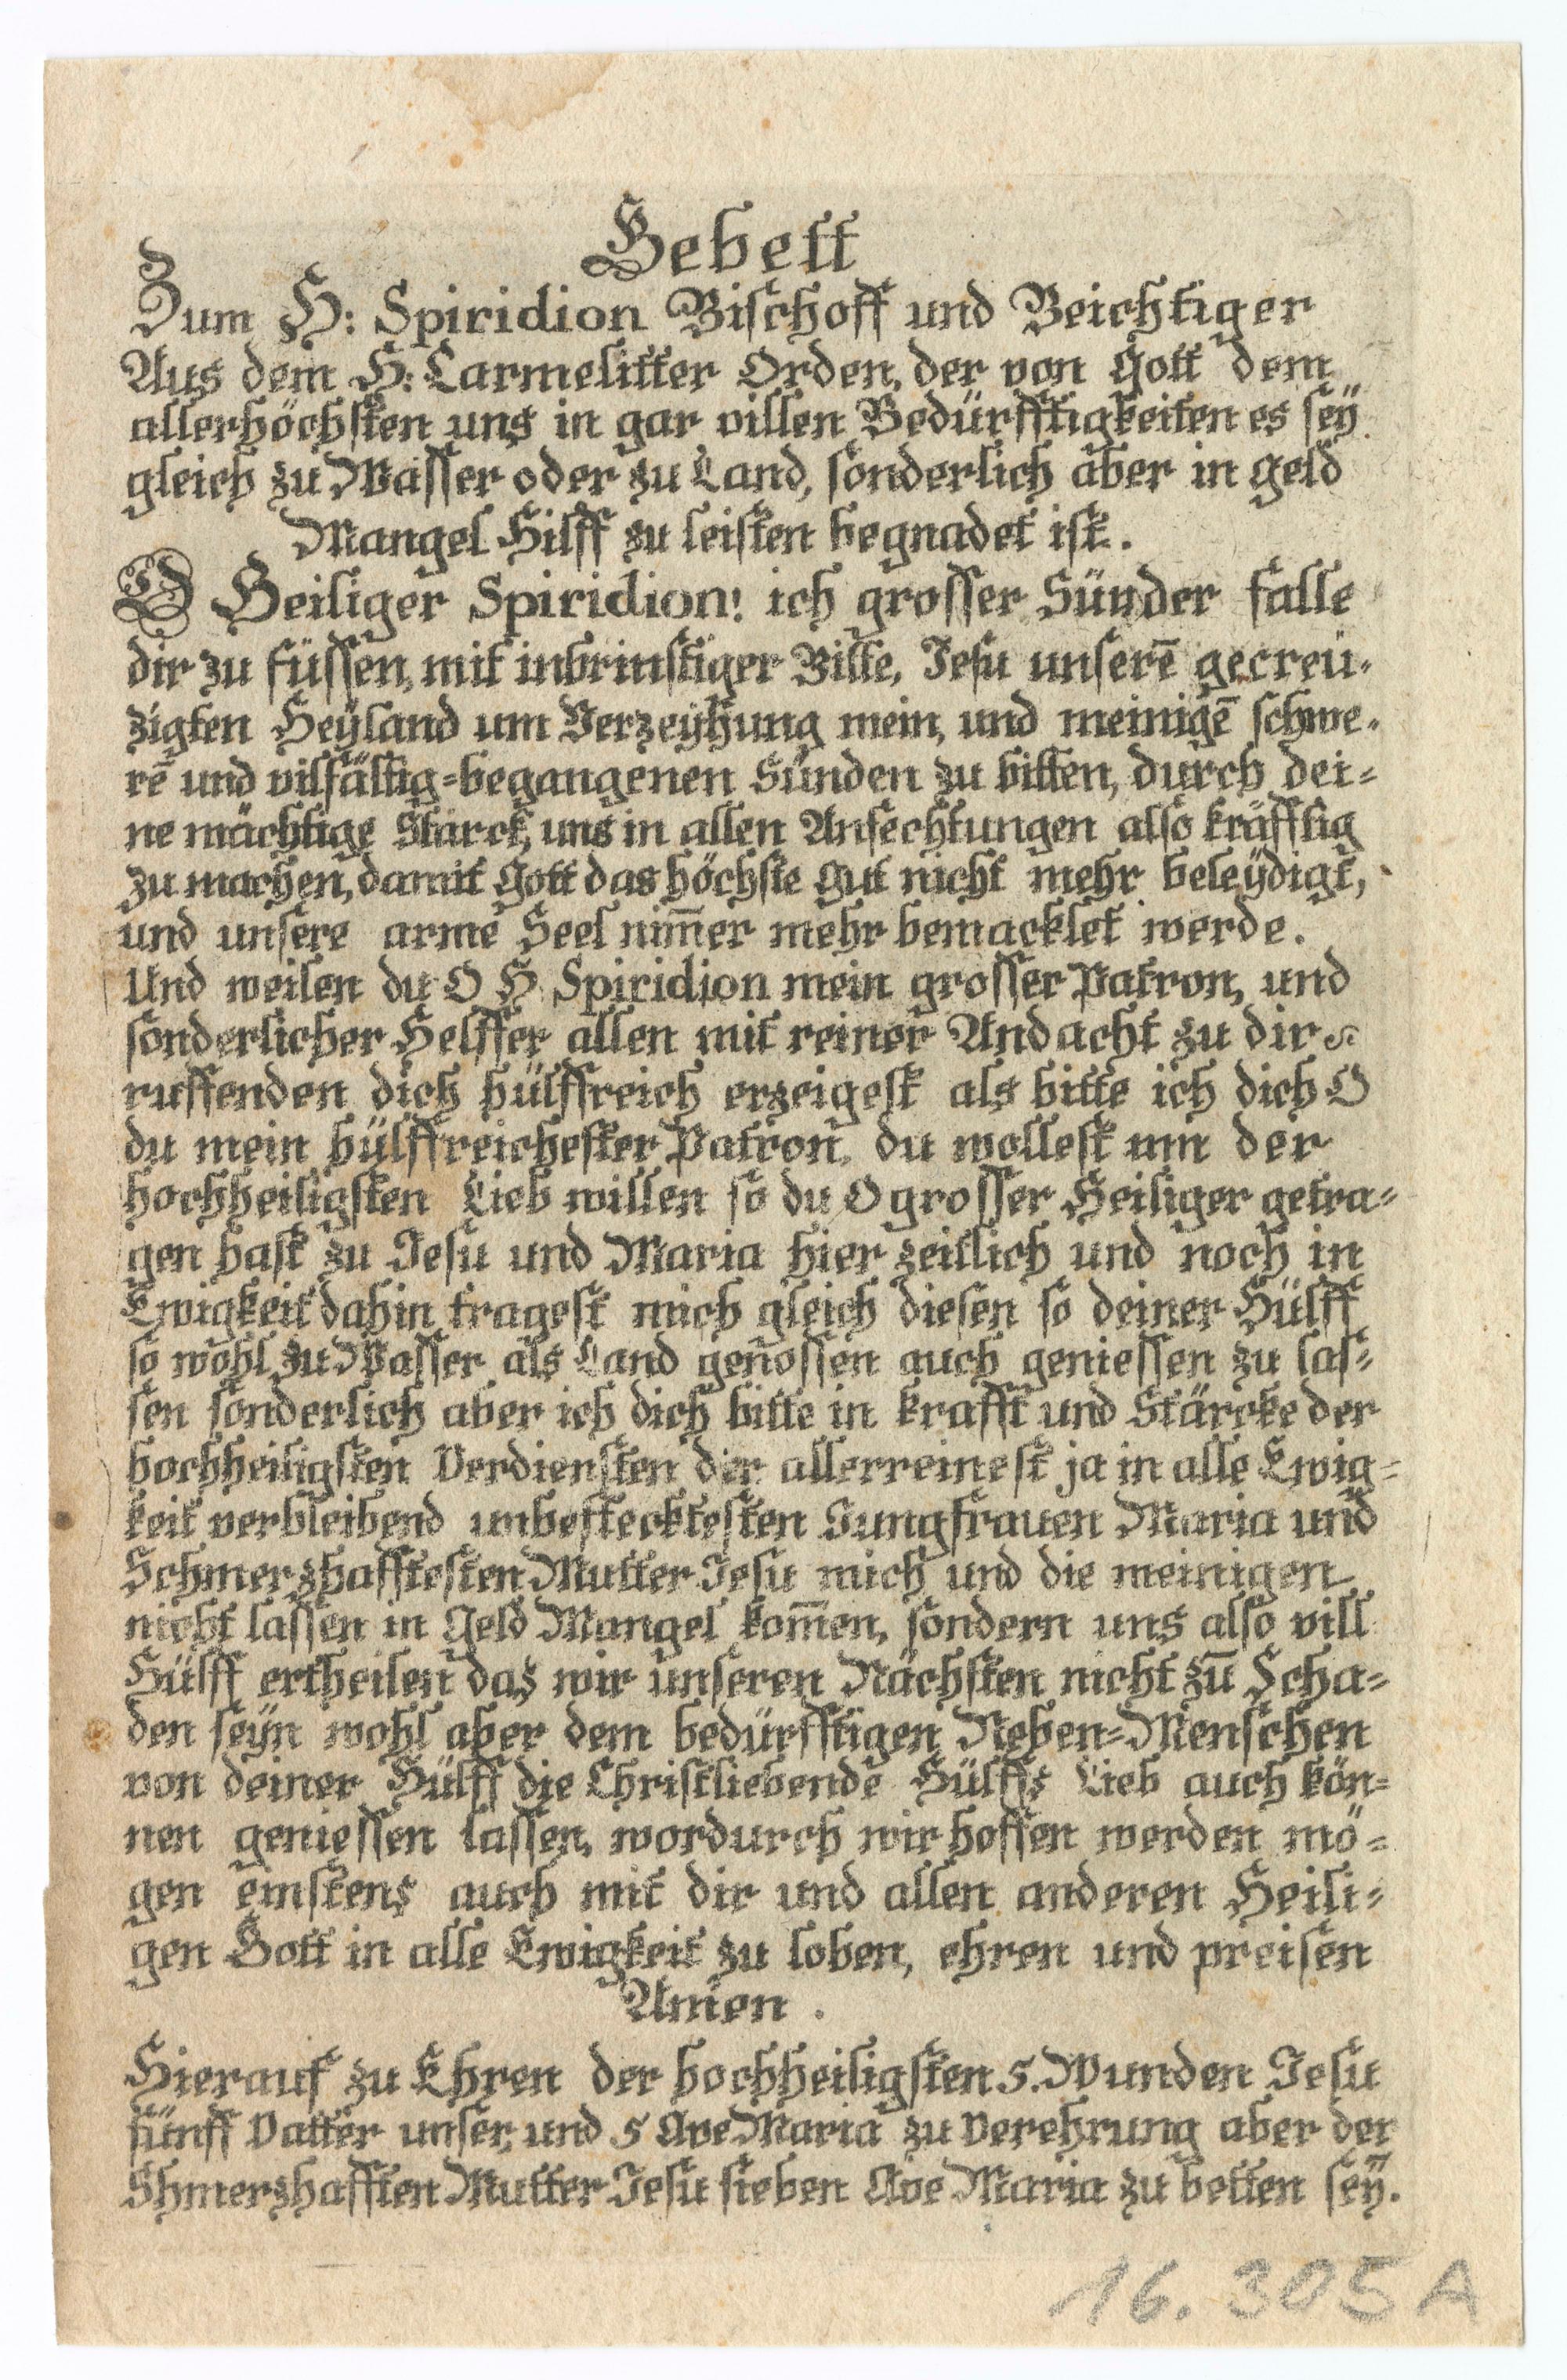 Gebett
Zum H: Spiridion Bischoff und Beichtiger
Aus dem H: Carmelitter Orden, der von Gott dem
allerhöchsten uns in gar villen Bedürfftigkeiten es seÿ
gleich zu Wasser oder zu Land, sonderlich aber in geld
Mangel Hilff zu leisten begnadet ist.
O Heiliger Spiridion! ich grosser Sünder falle
dir zu füssen, mit inbrinstiger Bitte, Jesu unserē gecreü-
zigten Heÿland um Verzeÿhung mein, und meinigē schwe-
rē und vilfältig=begangenen Sünden zu bitten, durch dei=
ne mächtige Starck, uns in allen Anfechtungen also kräfftig
zu machen, damit Gott das höchste Gut nicht mehr beleÿdigt,
und unsere arme Seel nim̄er mehr bemacklet werde.
Und weilen du O H. Spiridion mein grosser Patron, und
sonderlicher Helffer allen mit reiner Andacht zu dir
ruffenden dich hülffreich erzeigest als bitte ich dich O
du mein hülffreichester Patron, du wollest um der
hochheiligsten Lieb willen so du O grosser Heiliger getra=
gen hast zu Jesu und Maria hier zeitlich und noch in
Ewigkeit dahin tragest mich gleich diesen so deiner Hülff
so wohl zu Wasser als Land gen̄ossen auch geniessen zu las=
sen sonderlich aber ich dich bitte in krafft und Stärcke der
hochheiligsten Verdiensten der allerreinest ja in alle Ewig=
keit verbleibend unbeflecktesten Jungfrauen Maria und
Schmerzhafftesten Mutter Jesu mich und die meinigen
nicht lassen in Geld Mangel kom̄en, sondern uns also vill
Hülff ertheilen das wir unseren Nächsten nicht zū Scha=
den seÿn wohl aber dem bedürfftigen Neben=Menschen
von deiner Hülff die Christliebende Hülffs Lieb auch kön=
nen geniessen lassen, wordurch wir hoffen werden mö=
gen einstens auch mit dir und allen anderen Heili=
gen Gott in alle Ewigkeit zu loben, ehren und preisen
Amen.
Hierauf zu Ehren der hochheiligsten 5. Wunden Jesu
fünff Vatter unser, und 5 Ave Maria zu Verehrung aber der
Shmerzhafften Mutter Jesu sieben Ave Maria zu betten seÿ.
16.305A